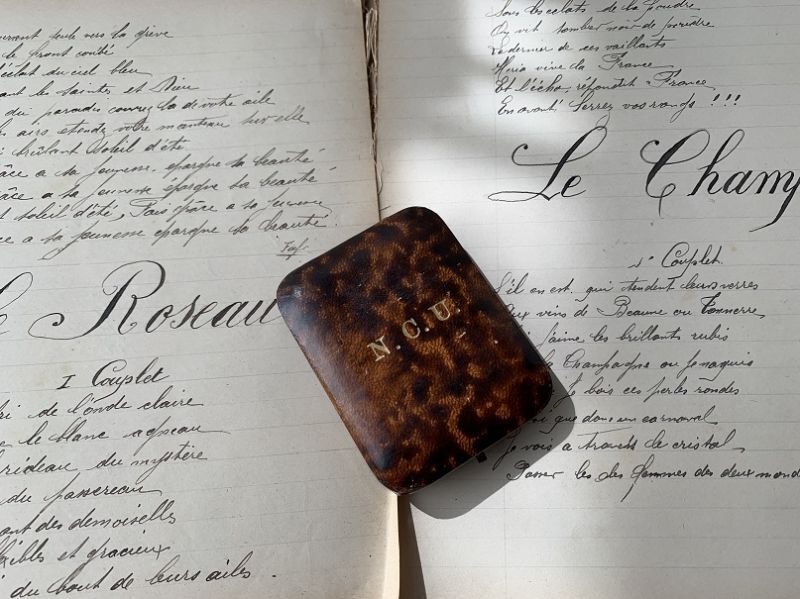 seule vers la grève
le front
éclat du ciel bleu
les saintes et Dieu
du paradis de votre aile
airs votre manteau sur elle
brûlant Soleil d'été
a sa jeunesse épargne sa beauté
grâce a sa jeunesse épargne sa beauté
soleil d'été, grâce a sa jeunesse
a sa jeunesse épargne sa beauté
Roseau
I Couplet
de l'onde claire
le blanc
rideau du mystère
du passereau
des demoiselles
et gracieux
du bout de leurs ailes.
N.C.U.
Sous les éclats de la poudre
On vit tomber noir de poudre
Le dernier de ces vaillants
vive la France
Et l'écho, répondit France
En avant! Serrez vos rangs!!!
Le Champ
1r Couplet
S'il en est qui tendent leurs verres
Aux vins de Beaune ou Tonnerre
j'aime les brillants rubis
le Champagne ou je
je bois ces perles rondes
que dans un carnaval
Je vois a travers le cristal
Passer les des femmes des deux mond